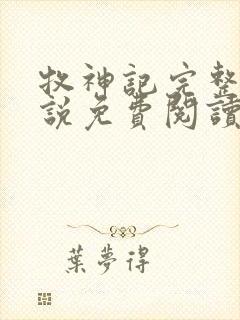 牧神記完整
說免費閱讀
葉夢得